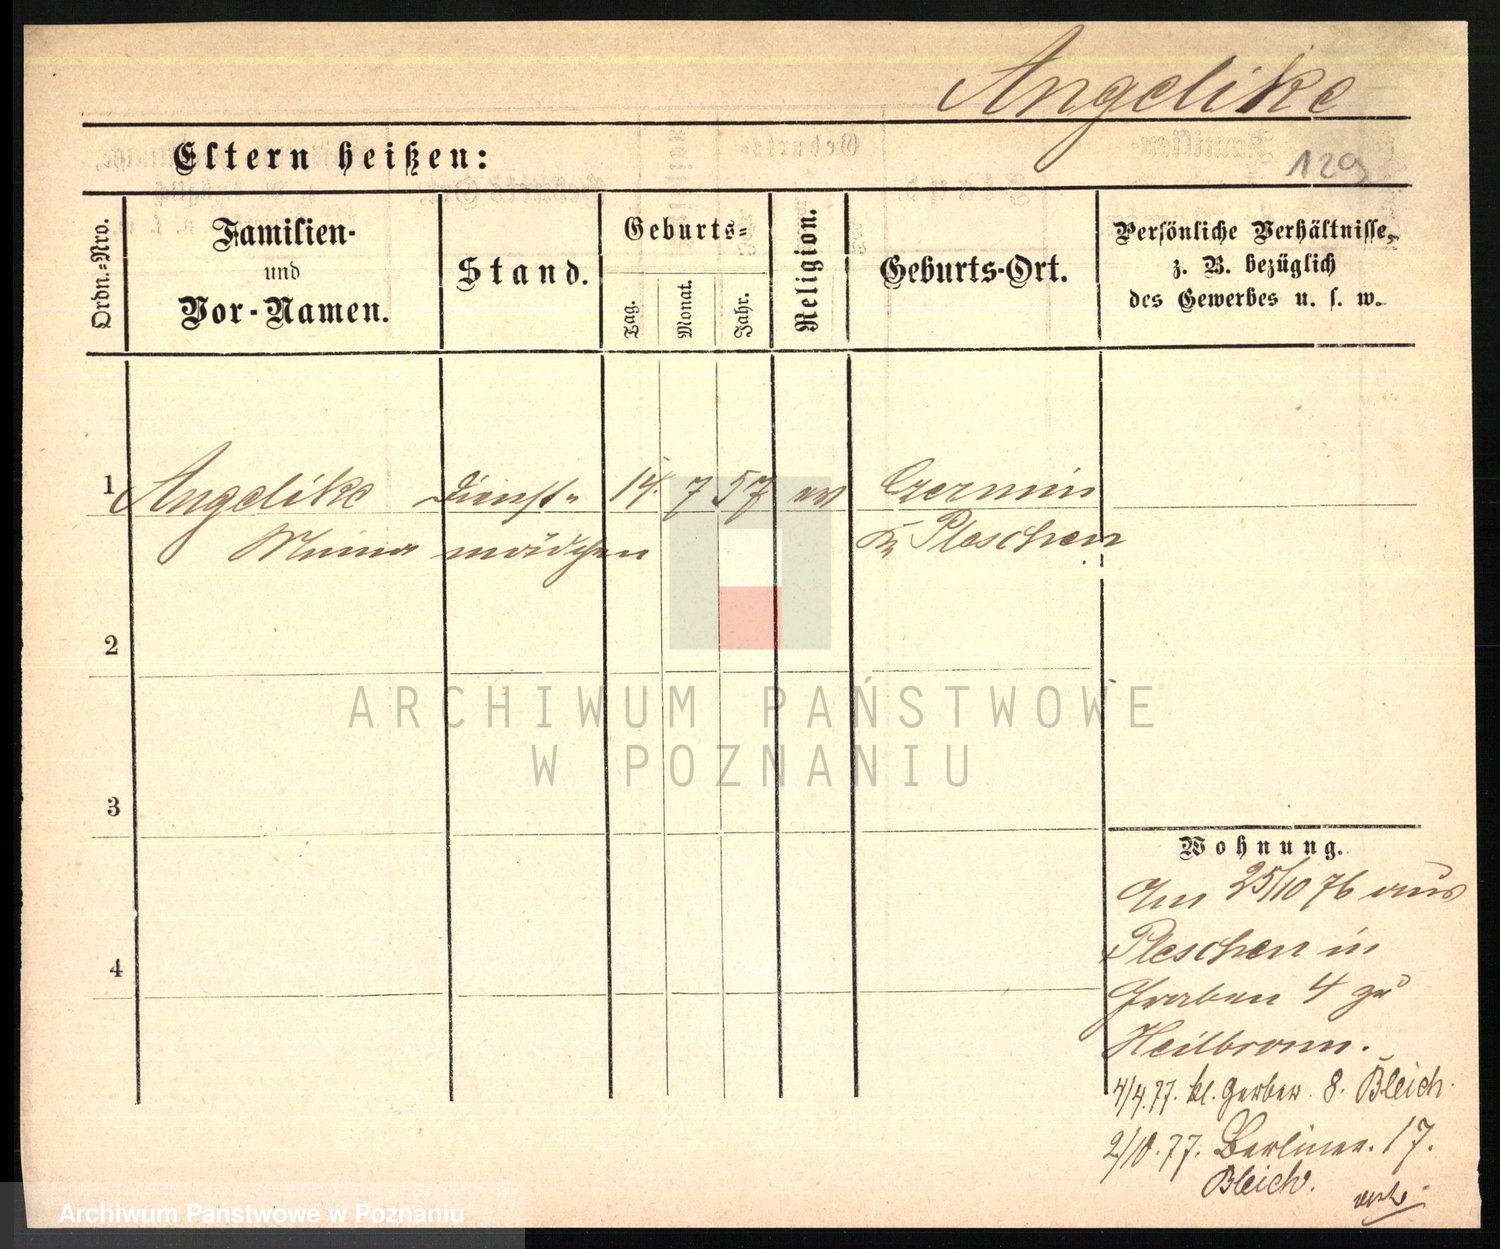 Angelike
129
Eltern heißen:
Ordn.=Nro.
Familien-
und
Vor-Namen.
Stand.
Geburts=
Tag.
Monat.
Jahr.
Religion.
Geburts-Ort.
Persönliche Verhältnisse,
z. B. bezüglich
des Gewerbes u. s. w.
1 Angelike Dienst= 14. 7 57 ev Czermin
Minna mädchen Pleschen
2
3
4
Wohnung.
Am 25/10 76 aus
Pleschen in
Graben 4 zu
Heilbronn.
4/4.77. kl. Gerber. 8. Bleich.
2/10.77. Berliner. 17.
Bleich.
ARCHIWUM PAŃSTWOWE
W POZNANIU
Archiwum Państwowe w Poznaniu